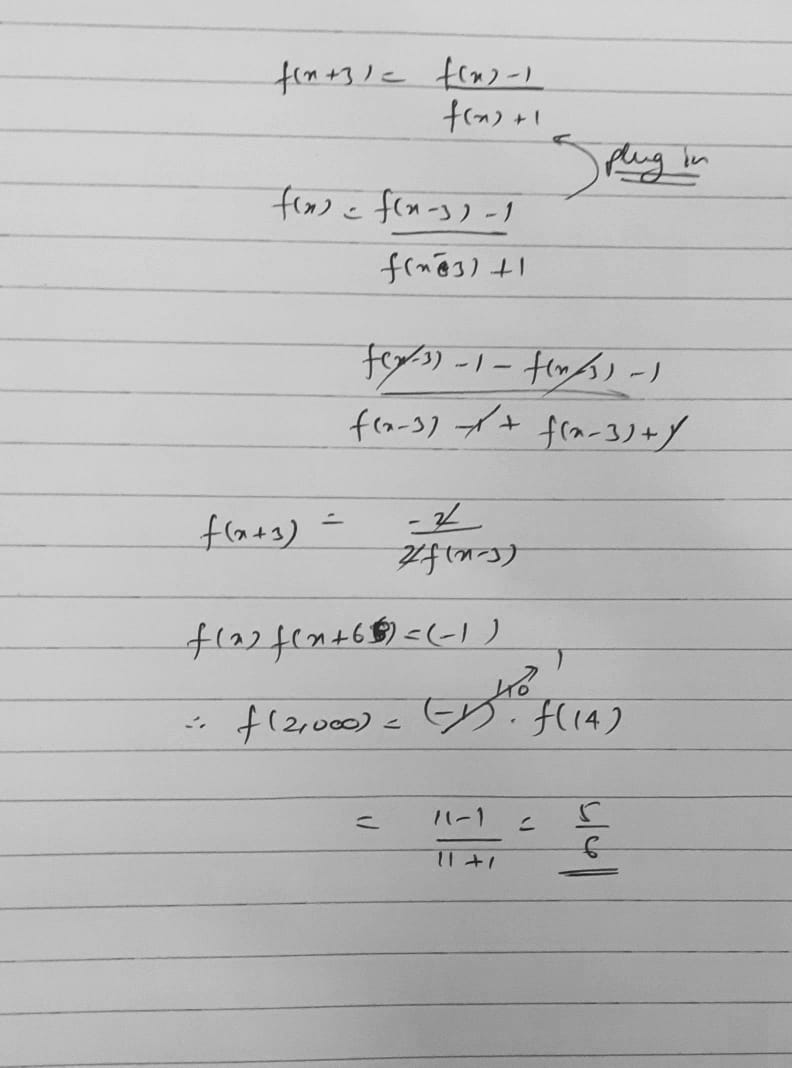 f(x+3) = f(x)-1
f(x)+1
plug in
f(x) = f(x-3)-1
f(x-3)+1
f(x-3)-1-f(x-3)-1
f(x-3)-1+f(x-3)+1
f(x+3) = -2
2f(x-3)
f(x)f(x+6)=(-1)
1
∴ f(2,000) = (-1) . f(14)
= 11-1 = 5
11+1 6